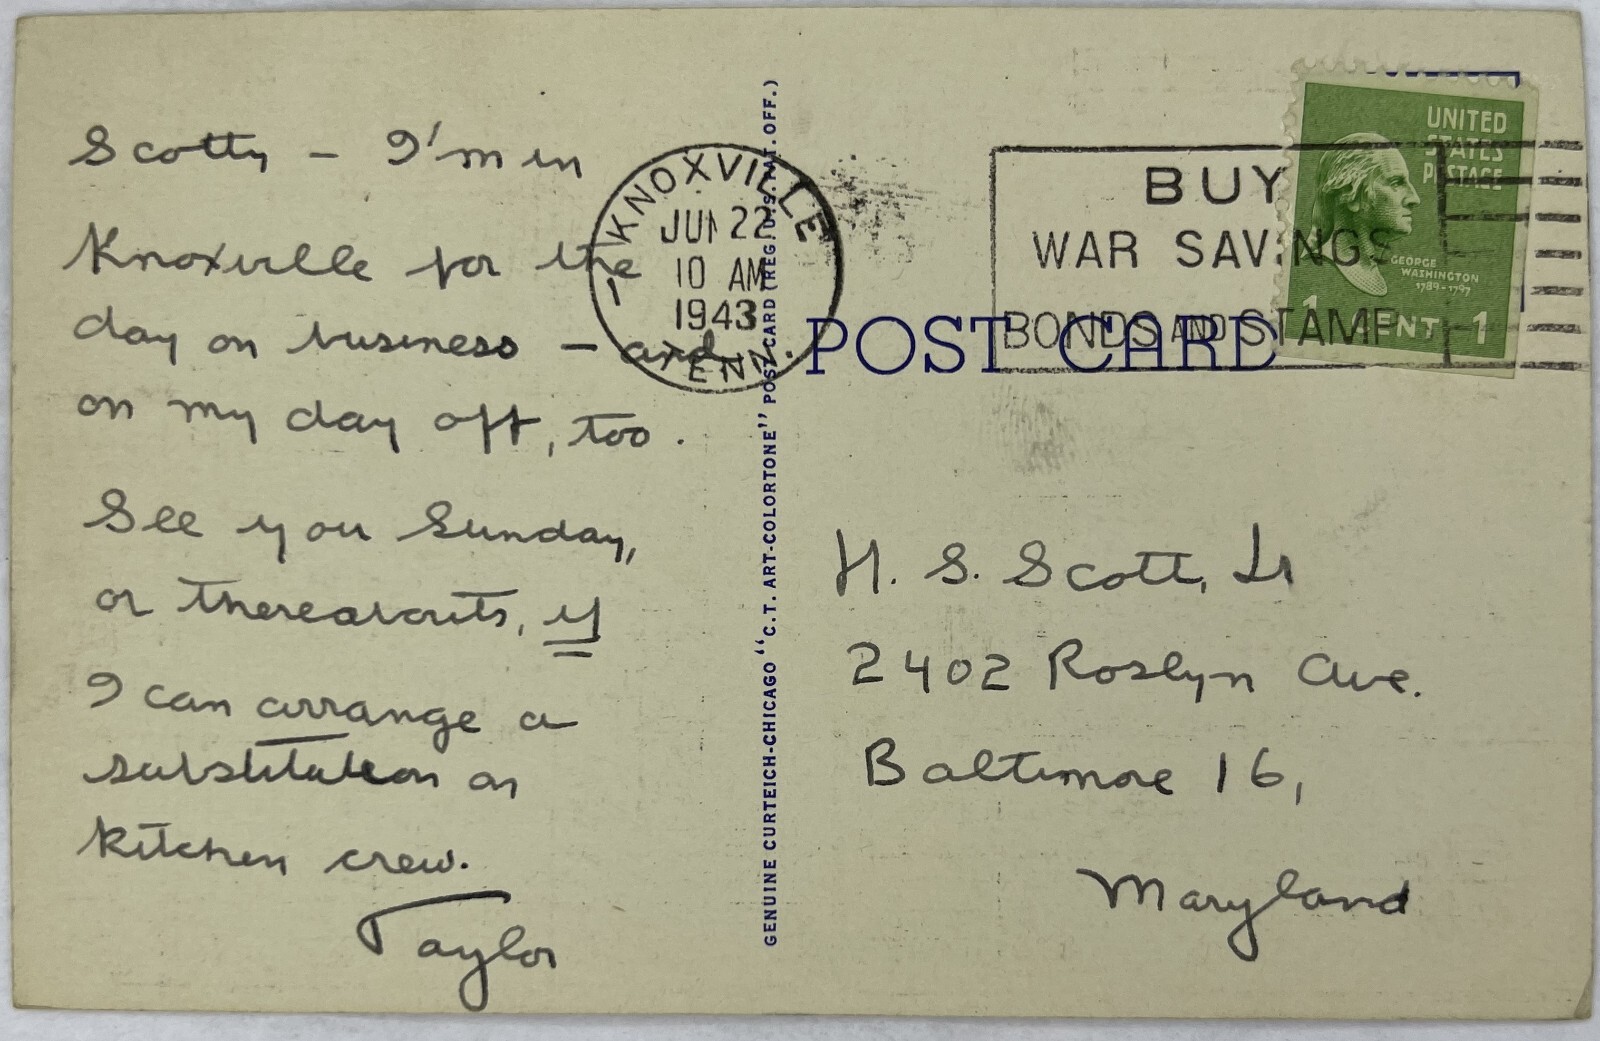 Scotty – I'm in
Knoxville for the
day on business – and
on my day off, too.
See you Sunday,
or thereabouts, if
I can arrange a
substitution on
kitchen crew.
Taylor
KNOXVILLE
JUN 22
10 AM
1943
TENN.
GENUINE CURTEICH-CHICAGO "C.T. ART-COLORTONE" POST CARD (REG. U.S. PAT. OFF.)
BUY
WAR SAVINGS
BONDS AND STAMPS
UNITED
STATES
POSTAGE
GEORGE
WASHINGTON
1789-1797
1 CENT 1
POST CARD
H. S. Scott, Jr
2402 Roslyn Ave.
Baltimore 16,
Maryland